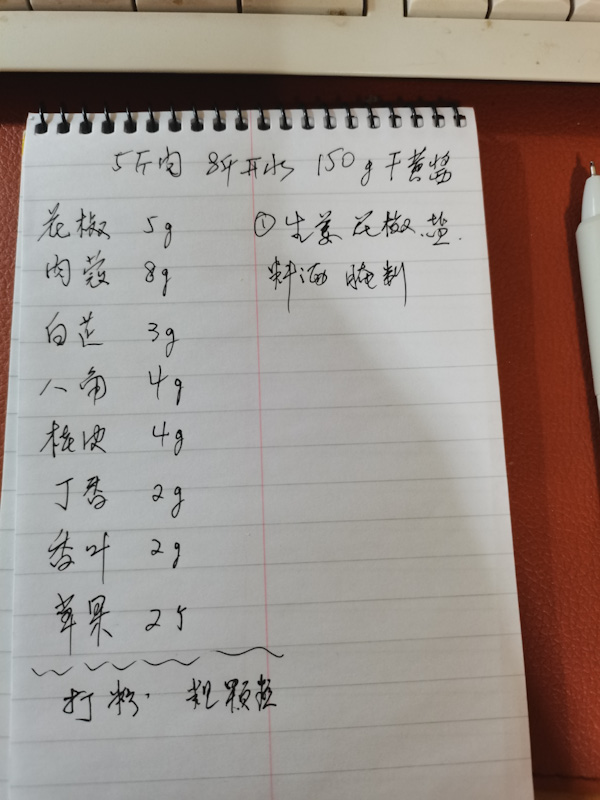 5斤肉 8斤开水 150g干黄酱
花椒 5g
肉蔻 8g
白芷 3g
八角 4g
桂皮 4g
丁香 2g
香叶 2g
草果 2个
打粉. 粗颗粒
①生姜 花椒 盐.
料酒 腌制